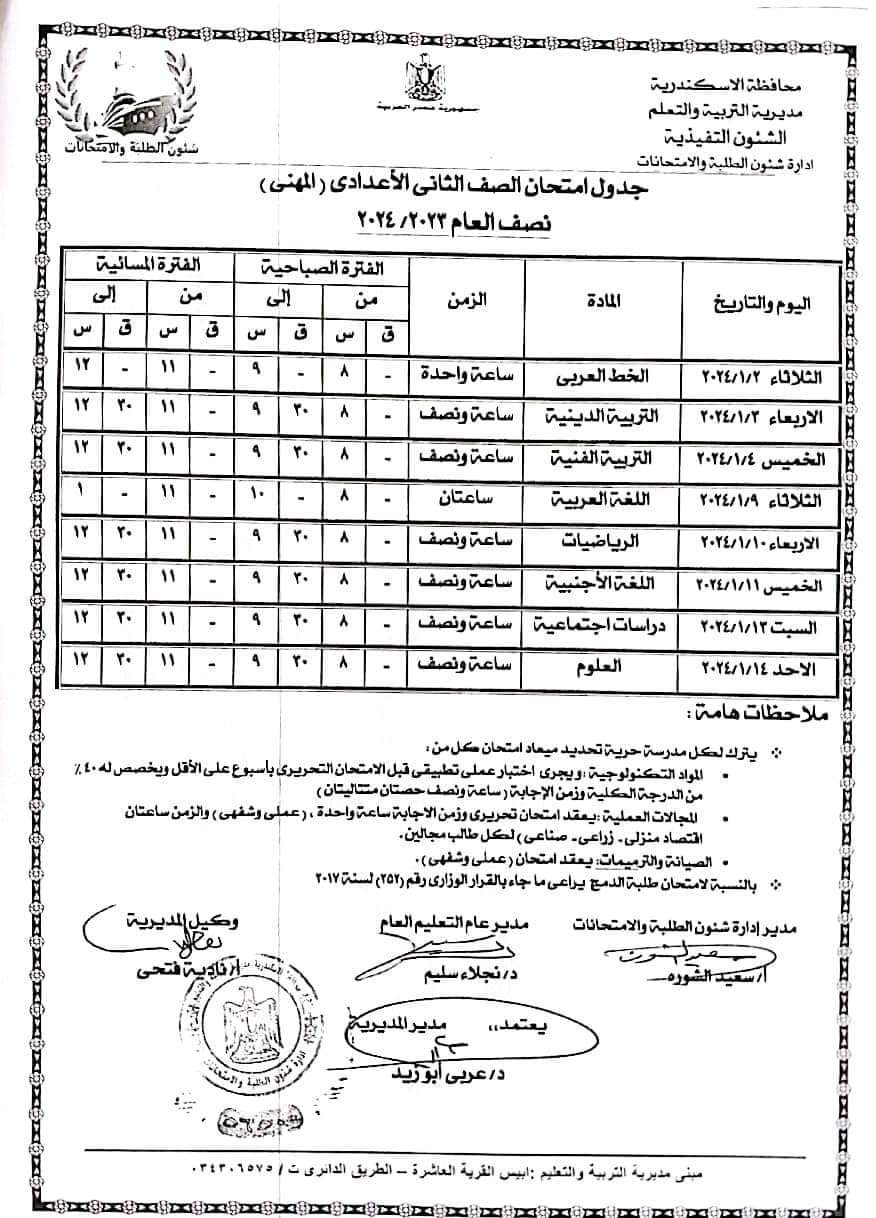 محافظة الاسكندرية
مديرية التربية والتعلم
الشئون التفيذية
ادارة شئون الطلبة والامتحانات
جمهورية مصر العربية
شئون الطلبة والامتحانات
جدول امتحان الصف الثانى الأعدادى (المهنى)
نصف العام ٢٠٢٣/ ٢٠٢٤
اليوم والتاريخ المادة الزمن الفترة الصباحية الفترة المسائية
من إلى من إلى
ق س ق س ق س ق س
الثلاثاء ٢٠٢٤/١/٢ الخط العربى ساعة واحدة - ٨ - ٩ - ١١ - ١٢
الاربعاء ٢٠٢٤/١/٣ التربية الدينية ساعة ونصف - ٨ ٣٠ ٩ - ١١ ٣٠ ١٢
الخميس ٢٠٢٤/١/٤ التربية الفنية ساعة ونصف - ٨ ٣٠ ٩ - ١١ ٣٠ ١٢
الثلاثاء ٢٠٢٤/١/٩ اللغة العربية ساعتان - ٨ - ١٠ - ١١ - ١
الاربعاء ٢٠٢٤/١/١٠ الرياضيات ساعة ونصف - ٨ ٣٠ ٩ - ١١ ٣٠ ١٢
الخميس ٢٠٢٤/١/١١ اللغة الأجنبية ساعة ونصف - ٨ ٣٠ ٩ - ١١ ٣٠ ١٢
السبت ٢٠٢٤/١/١٣ دراسات اجتماعية ساعة ونصف - ٨ ٣٠ ٩ - ١١ ٣٠ ١٢
الاحد ٢٠٢٤/١/١٤ العلوم ساعة ونصف - ٨ ٣٠ ٩ - ١١ ٣٠ ١٢
ملاحظات هامة :
يترك لكل مدرسة حرية تحديد ميعاد امتحان كل من :
المواد التكنولوجية : ويجرى اختبار عملى تطبيقى قبل الامتحان التحريرى بأسبوع على الأقل ويخصص له ٤٠٪
من الدرجة الكلية وزمن الإجابة (ساعة ونصف حصتان متتاليتان)
المجالات العملية : يعقد امتحان تحريرى وزمن الاجابة ساعة واحدة ، (عملى وشفهى) والزمن ساعتان
اقتصاد منزلى - زراعى - صناعى) لكل طالب مجالين.
الصيانة والترميمات: يعقد امتحان (عملى وشفهى) .
بالنسبة لامتحان طلبة الدمج يراعى ما جاء بالقرار الوزارى رقم (٢٥٢) لسنة ٢٠١٧
مدير إدارة شئون الطلبة والامتحانات مدير عام التعليم العام وكيل المديرية
أ/ سعيد الشوره د/ نجلاء سليم أ/ نادية فتحى
يعتمد،، مدير المديرية
د/ عربى أبو زيد
ادارة شئون الطلبة والامتحانات
مبنى مديرية التربية والتعليم : ابيس القرية العاشرة – الطريق الدائرى ت / ٠٣٤٣٠٦٥٧٥